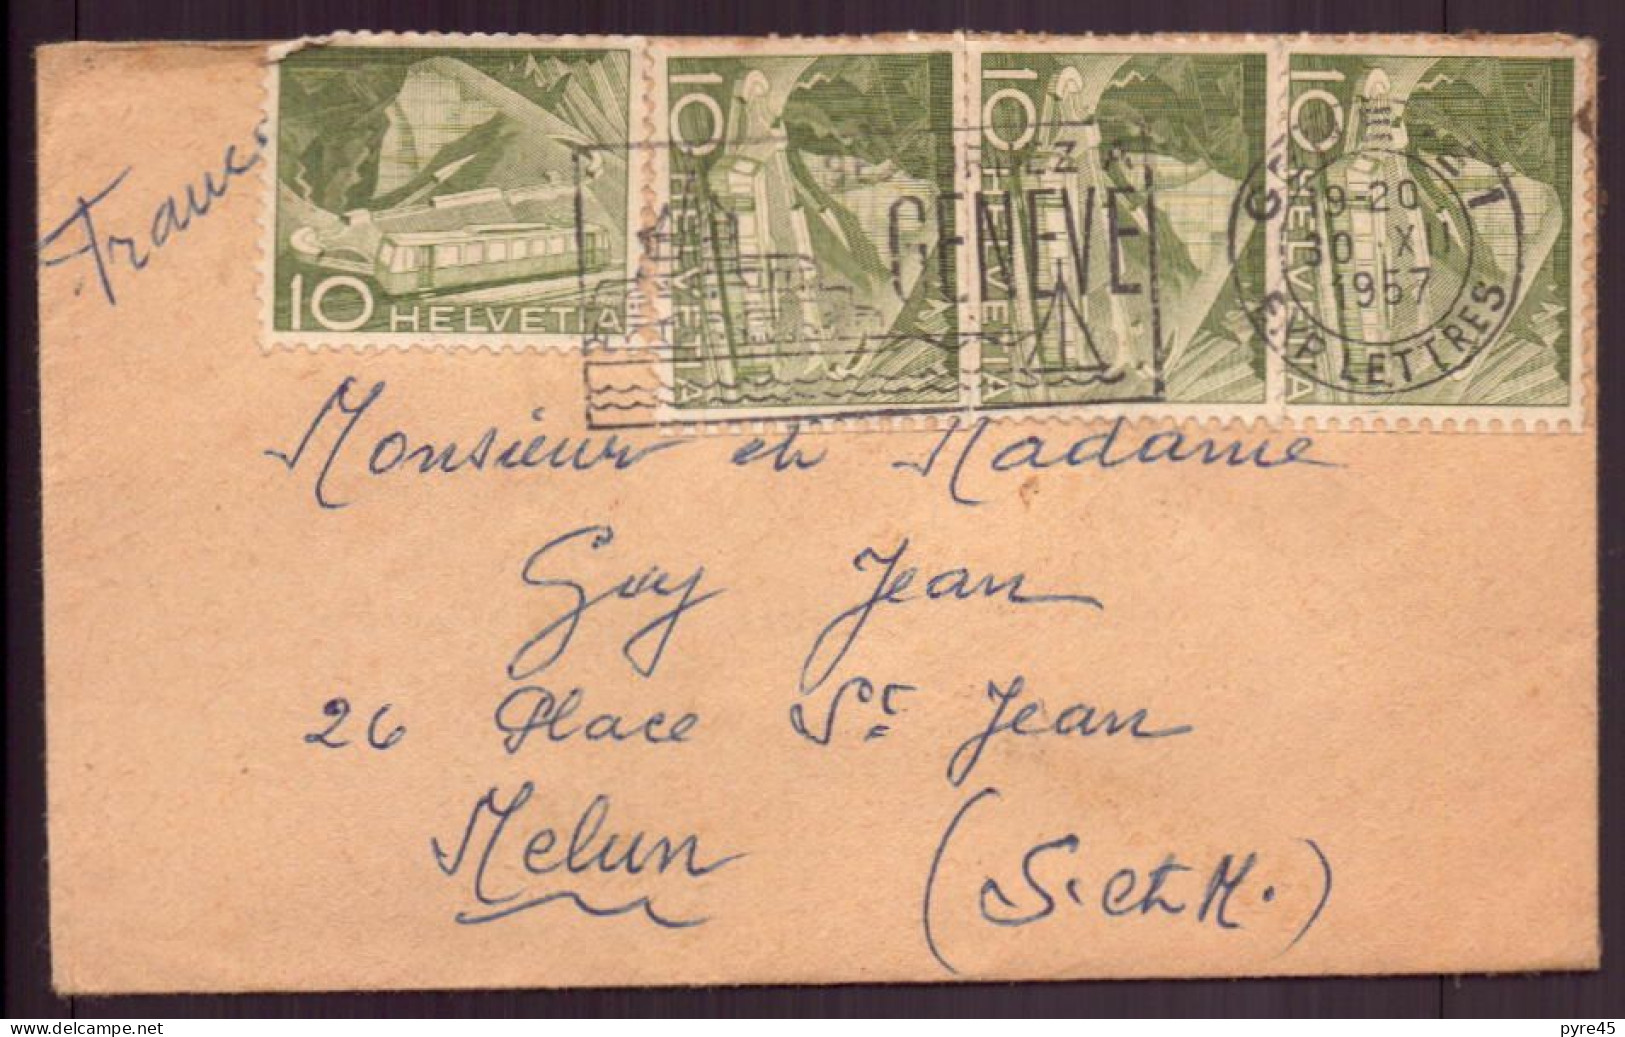 France
10 HELVETIA
10 HELVETIA
10 HELVETIA
10 HELVETIA
GENÈVE
GENÈVE 1
19-20
30 XII
1957
EXP. LETTRES
Monsieur et Madame
Guy Jean
26 Place St Jean
Melun (S. et M.)
delcampe.net
pyre45